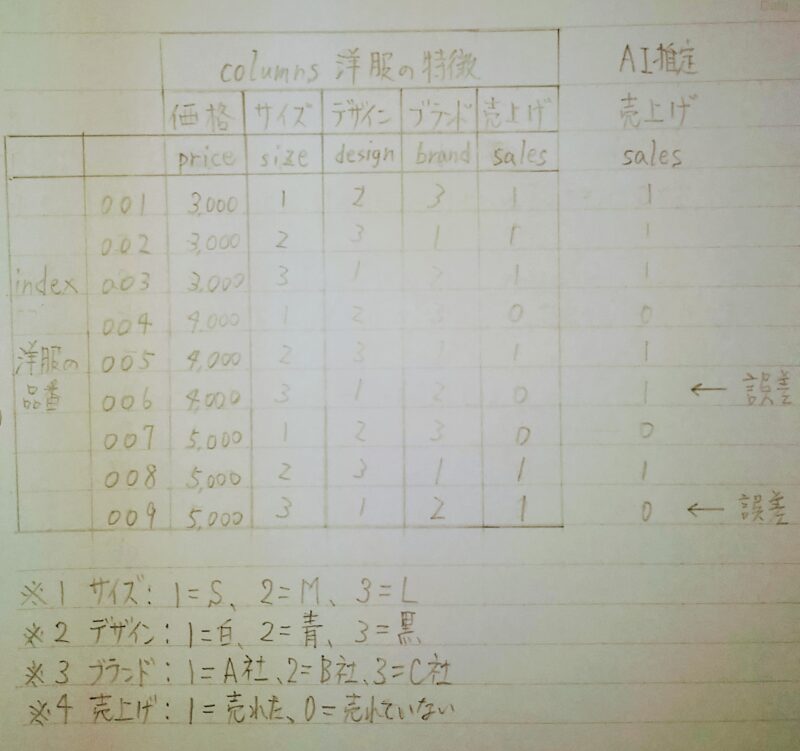 columns 洋服の特徴 AI推定
価格 サイズ デザイン ブランド 売上げ 売上げ
price size design brand sales sales
001 3,000 1 2 3 1 1
002 3,000 2 3 1 1 1
index 003 3,000 3 1 2 1 1
004 4,000 1 2 3 0 0
洋服の 005 4,000 2 3 1 1
品番 006 4,000 3 1 2 0 1 ← 誤差
007 5,000 1 2 3 0 0
008 5,000 2 3 1 1 1
009 5,000 3 1 2 1 0 ← 誤差
※1 サイズ: 1=S、2=M、3=L
※2 デザイン: 1=白、2=青、3=黒
※3 ブランド: 1=A社、2=B社、3=C社
※4 売上げ: 1=売れた、0=売れていない